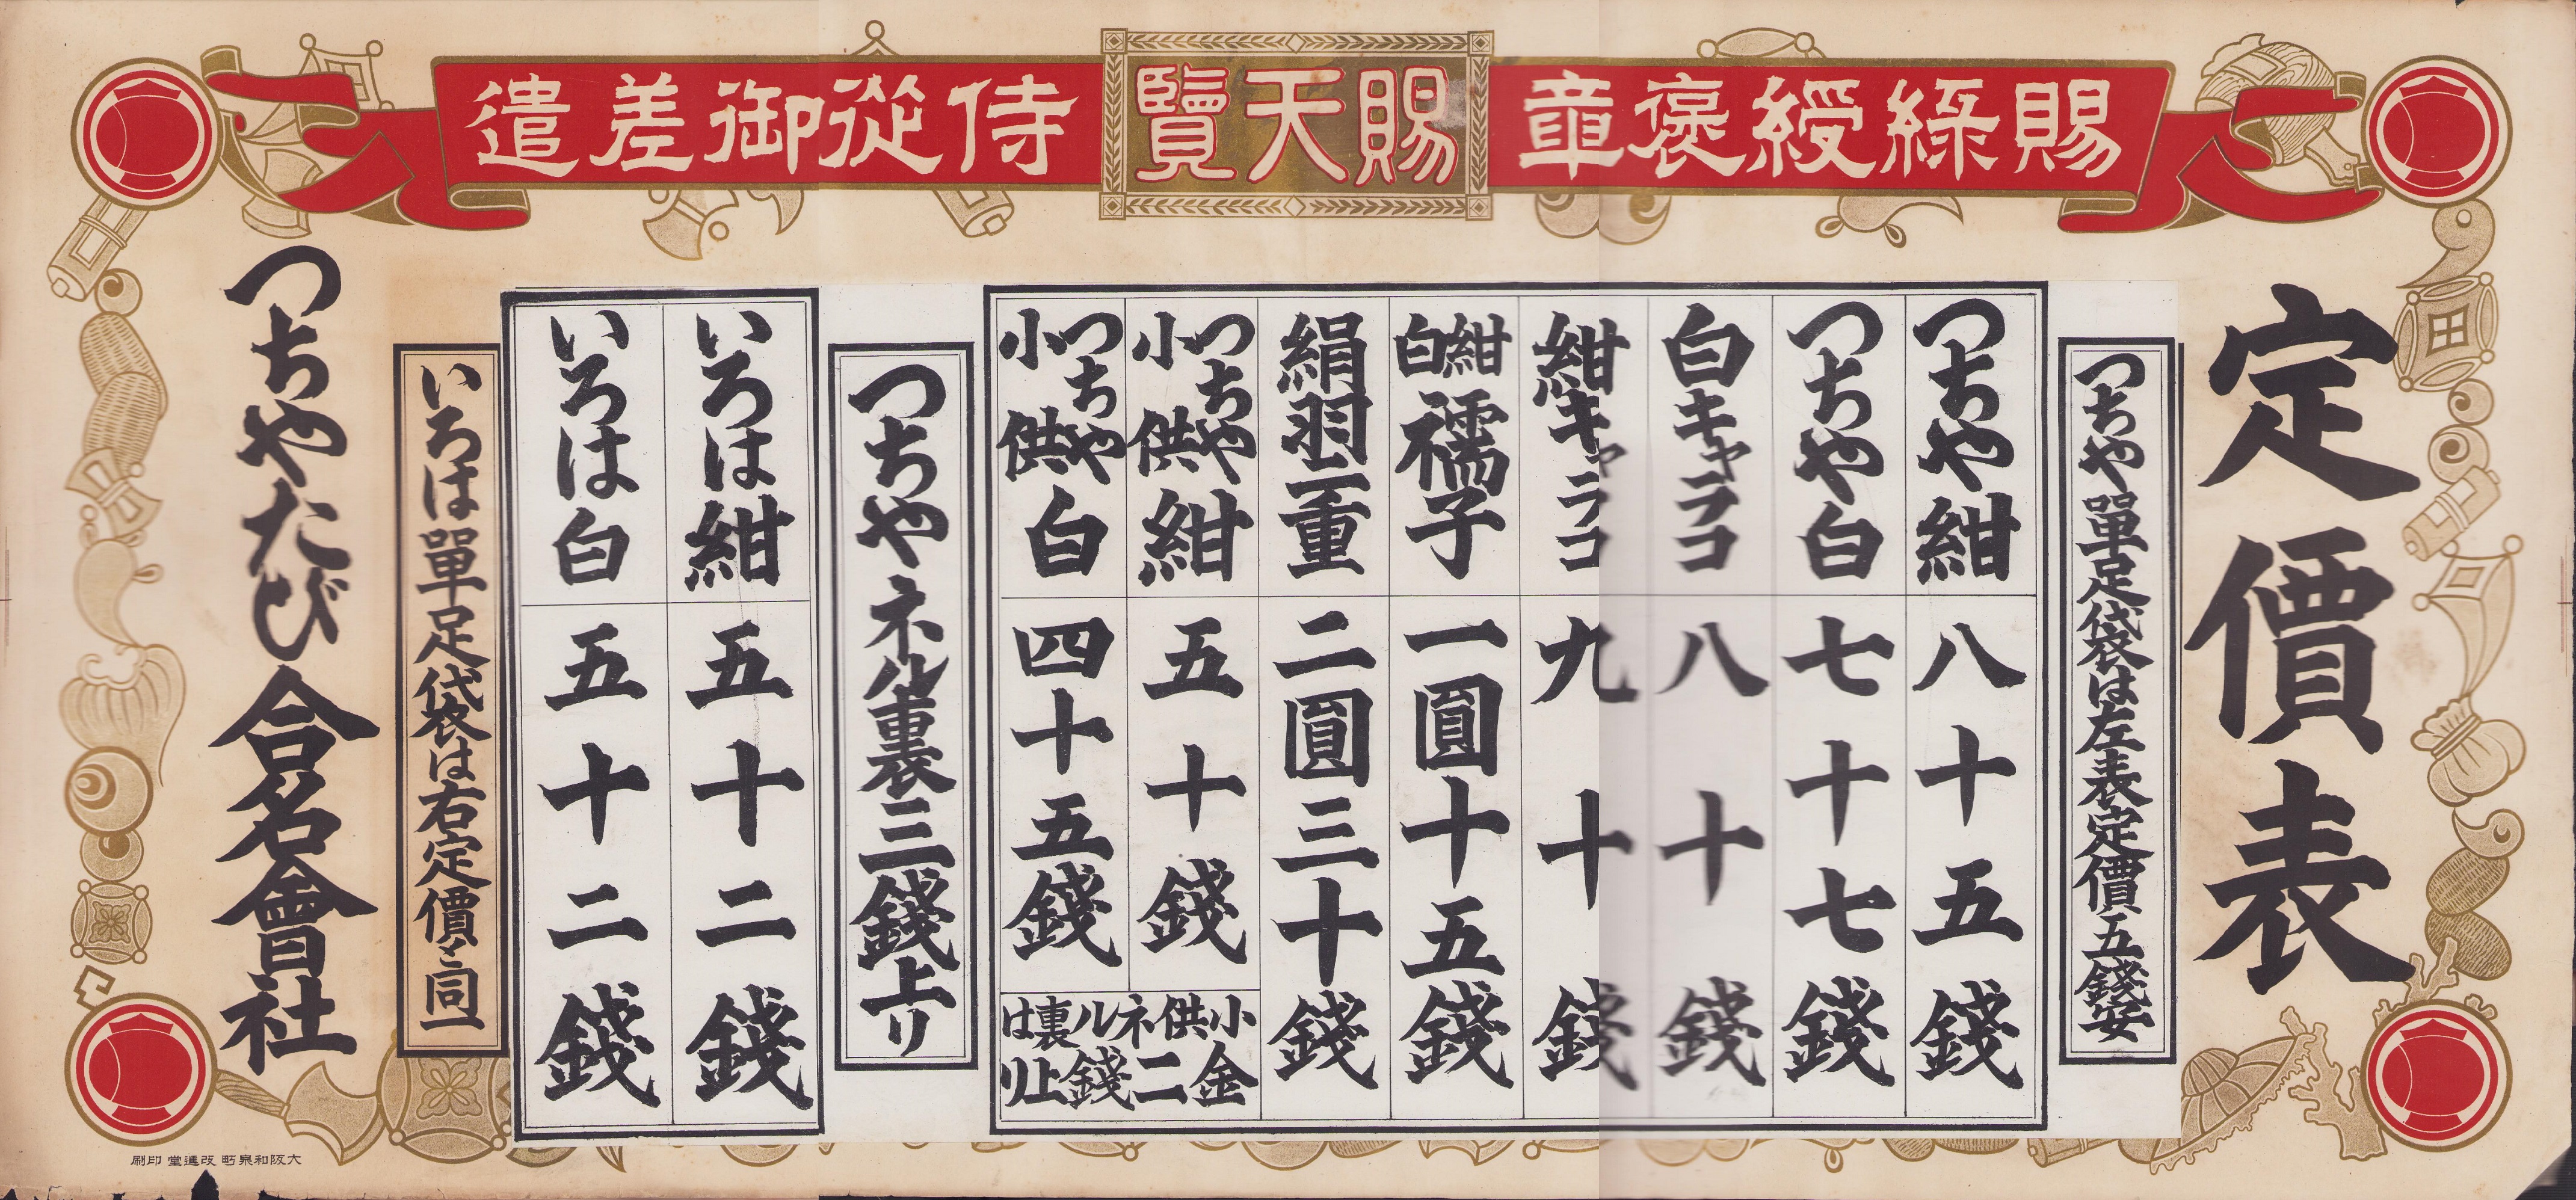 賜綠綬褒章
賜天覽
侍從御差遣
定價表
つちや單足袋は左表定價五錢安
つちや紺 八十五錢
つちや白 七十七錢
白キャラコ 八十錢
紺キャラコ 九十錢
紺白襦子 一圓十五錢
絹羽二重 二圓三十錢
つちや小供紺 五十錢
つちや小供白 四十五錢
小供ネル裏は
金二錢上リ
つちやネル裏三錢上リ
いろは紺 五十二錢
いろは白 五十二錢
いろは單足袋は右定價と同一
つちやたび合名會社
大阪和泉町 改進堂 印刷